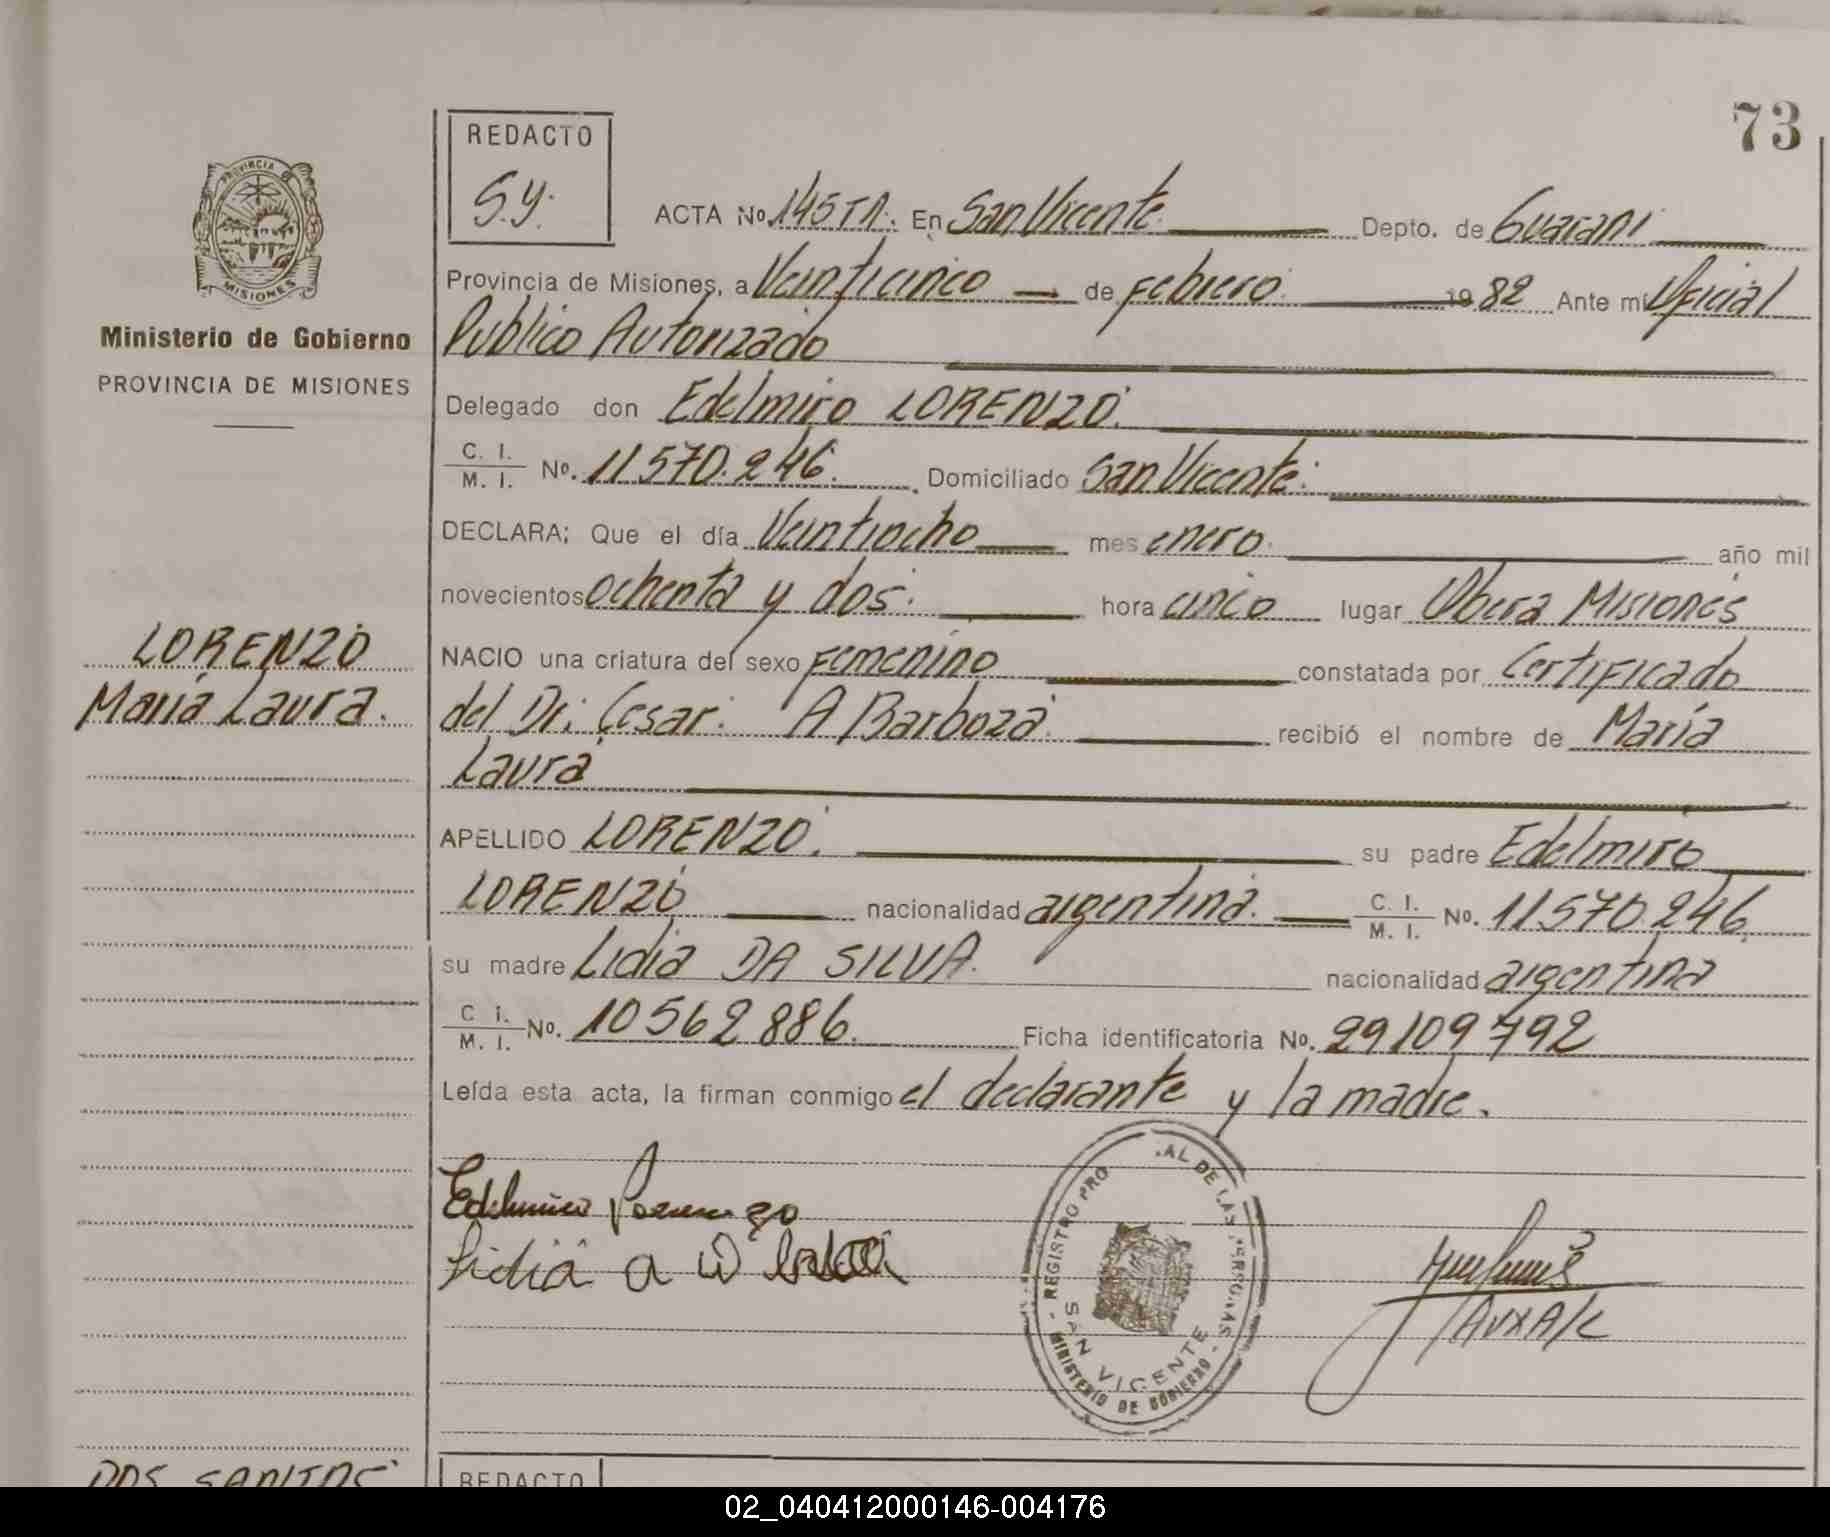 73
REDACTO
S.Y.
ACTA No. 145 TA. En San Vicente Depto. de Guarani
PROVINCIA DE MISIONES
Provincia de Misiones, a Veinticinco de Febrero. 1982 Ante mi Oficial
Ministerio de Gobierno
Publico Autorizado
PROVINCIA DE MISIONES
Delegado don Edelmiro LORENZO.
C. I. / M. I. No. 11570.246. Domiciliado San Vicente.
DECLARA; Que el día Veintiocho mes enero. año mil
novecientos ochenta y dos. hora cinco lugar Obera Misiones
LORENZO
NACIO una criatura del sexo Femenino constatada por Certificado
María Laura.
del Dr. Cesar. A Barboza. recibió el nombre de María
Laura
APELLIDO LORENZO. su padre Edelmiro
LORENZO nacionalidad argentina. C. I. / M. I. No. 11570.246.
su madre Lidia DA SILVA. nacionalidad argentina
C. I. / M. I. No. 10562886. Ficha identificatoria No. 29109792
Leída esta acta, la firman conmigo el declarante y la madre.
Edelmiro Lorenzo
Lidia a D
REGISTRO PRO AL DE LAS PERSONAS
SAN VICENTE
- MINISTERIO DE GOBIERNO -
DOS SANTOS
REDACTO
02_040412000146-004176